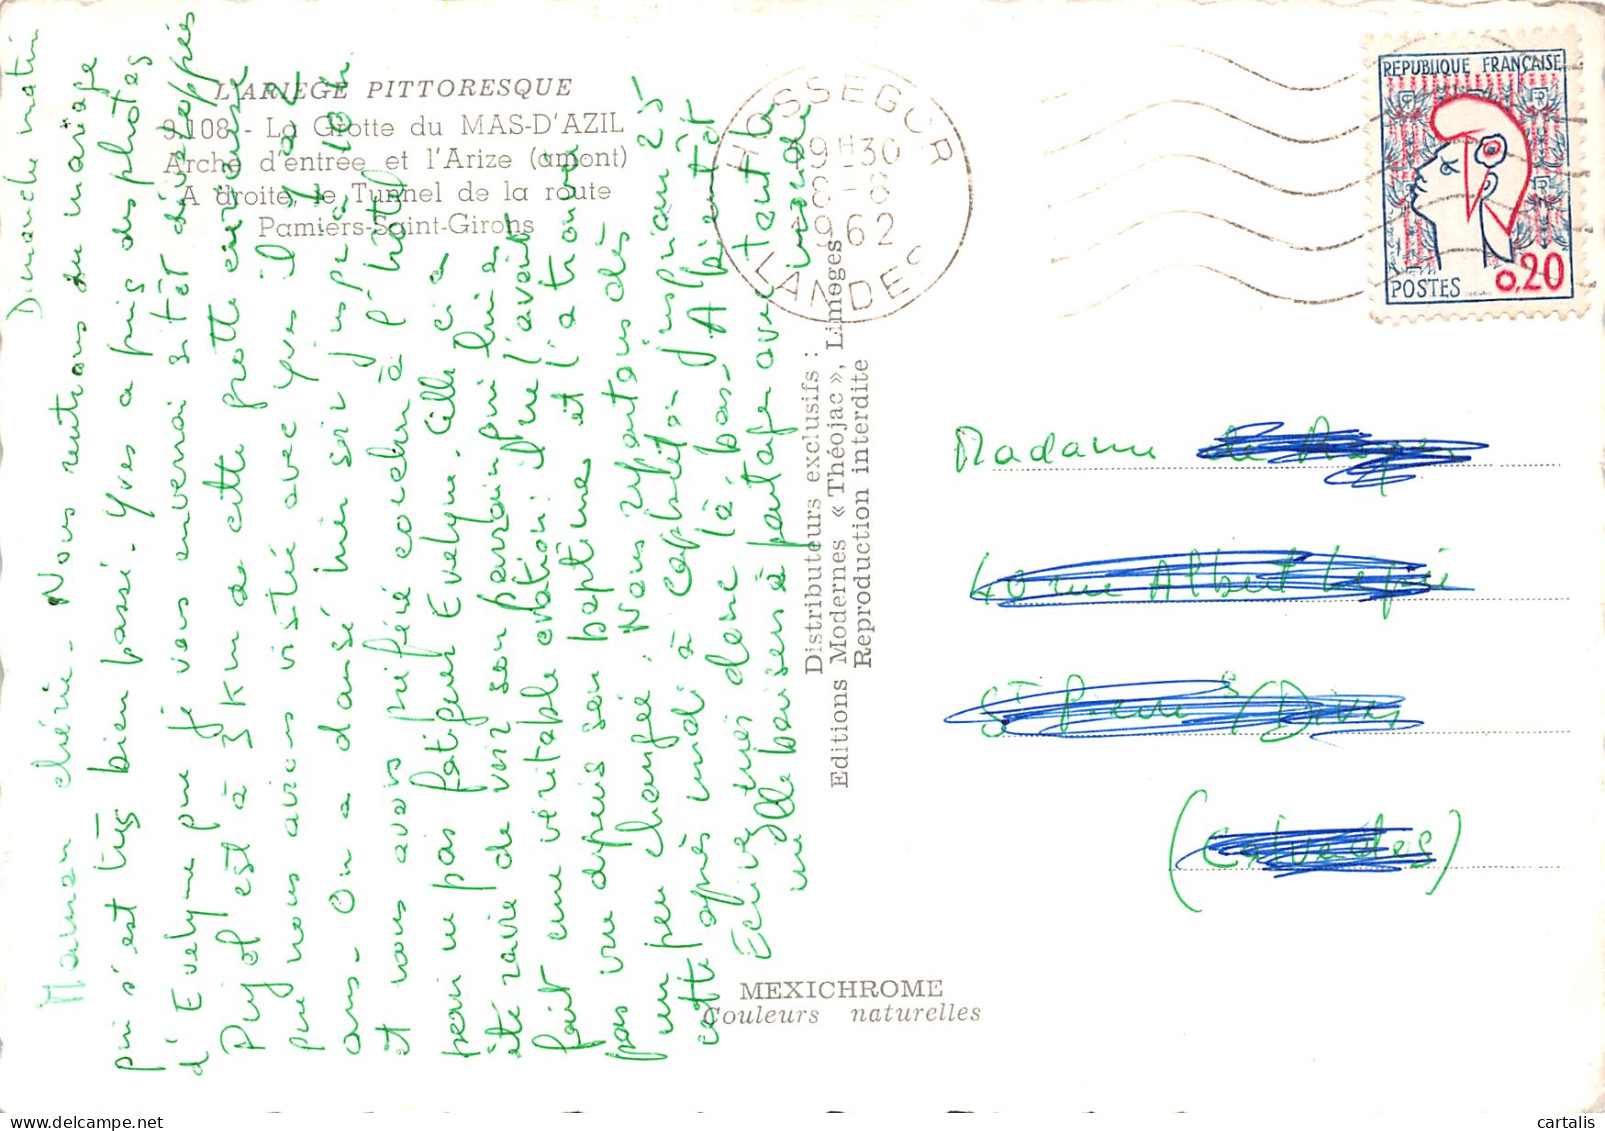 L'ARIEGE PITTORESQUE
9.108 - La Grotte du MAS-D'AZIL
Arche d'entrée et l'Arize (amont)
A droite, le Tunnel de la route
Pamiers-Saint-Girons
Dimanche matin
Maman chérie - Nous rentrons du mariage
qui s'est très bien passé - Yves a pris des photos
d'Evelyne que je vous enverrai sitôt développées
et est à 3 Km de cette grotte curieuse
que nous avions visitée avec Yves il y a 2
ans - On a dansé hier soir jusqu'à 10h
et nous avons préféré coucher à l'hôtel
pour ne pas fatiguer Evelyne. Celle ci a
été ravie de voir son parrain qui lui a
fait une véritable ovation : il ne l'avait
pas vue depuis son baptême et l'a trouvée
un peu changée. Nous repartons dès
cette après midi à Capbreton jusqu'au 25
Ecrivez nous donc là-bas - A bientôt
mille baisers à partager avec tout le
monde
Distributeurs exclusifs :
Editions Modernes « Théojac », Limoges
Reproduction interdite
MEXICHROME
Couleurs naturelles
HOSSEGOR
19H30
8-8
1962
LANDES
REPUBLIQUE FRANÇAISE
RF
RF
POSTES
0,20
Madame de
40 rue Albert
St Pierre s/Dives
(Calvados)
cartalis